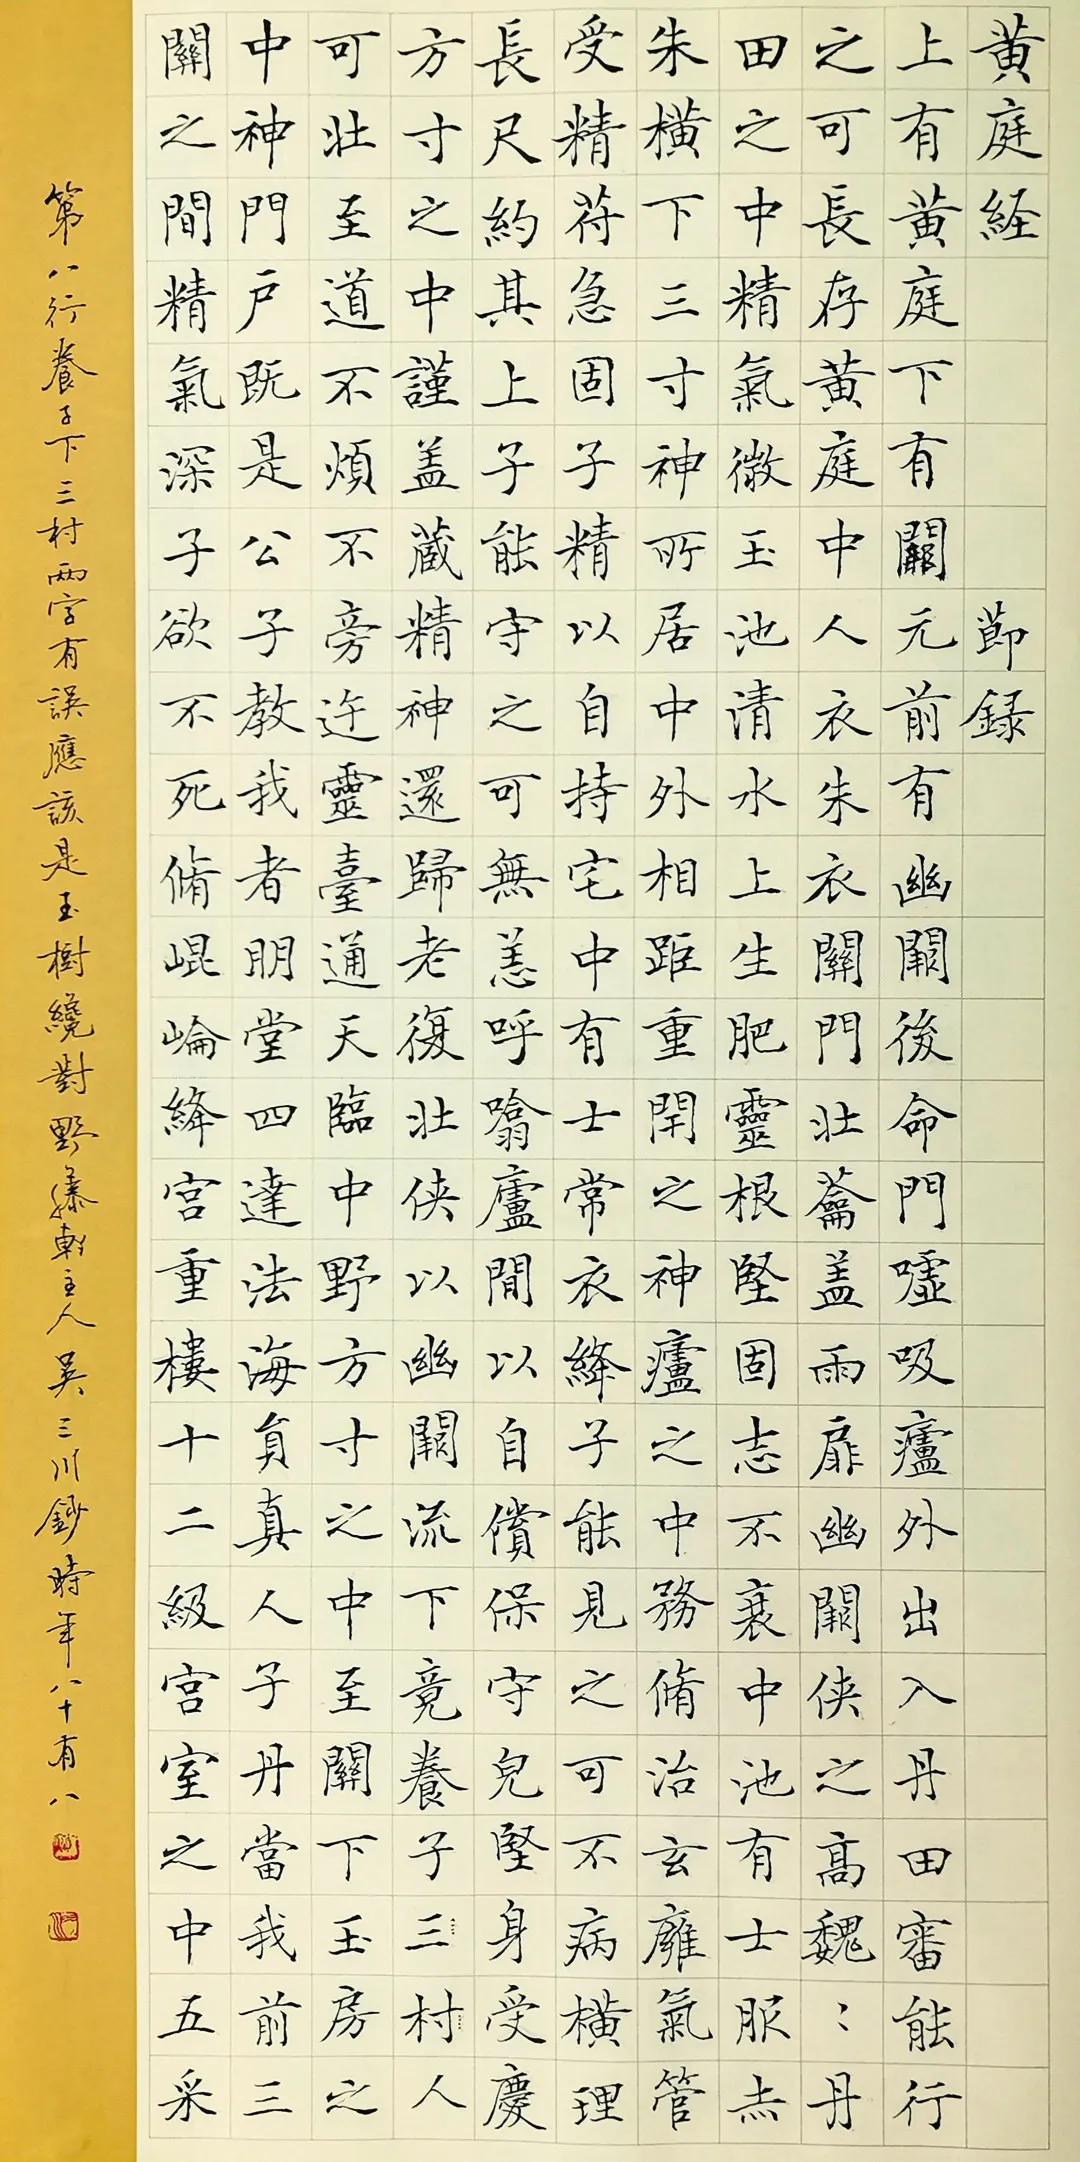 黄庭経 節録
上有黄庭下有關元前有幽闕後命門噓吸廬外出入丹田審能行
之可長存黄庭中人衣朱衣關門壮蘥盖兩扉幽闕侠之髙魏〻丹
田之中精氣微玉池清水上生肥靈根堅固志不衰中池有士服赤
朱橫下三寸神所居中外相距重閇之神廬之中務脩治玄廱氣管
受精苻急固子精以自持宅中有士常衣絳子能見之可不病橫理
長尺約其上子能守之可無恙呼噏廬間以自償保守皃堅身受慶
方寸之中謹盖蔵精神還歸老復壮侠以幽闕流下竟養子三村人
可壮至道不煩不旁迕靈臺通天臨中野方寸之中至關下玉房之
中神門戶既是公子教我者明堂四達法海員真人子丹當我前三
關之間精氣深子欲不死脩崐崘絳宮重樓十二級宮室之中五采
第八行養子下三村兩字有誤應該是玉樹纔對野藤軒主人吳三川鈔時年八十有八